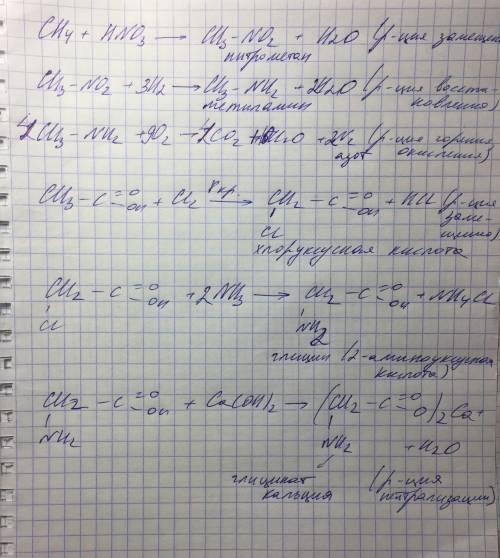 CH4 + HNO3 → CH3-NO2 + H2O (р-ция замещен
нитрометан
CH3-NO2 + 3H2 → CH3-NH2 + 2H2O (р-ция восста-
метиламин
новления)
4CH3-NH2 + 9O2 → 4CO2 + 10H2O + 2N2 (р-ция горения
азот
окисления)
CH3-C=O-OH + Cl2 P кр. → CH2-C=O-OH + HCl (р-ция
Cl
заме-
щения)
хлоруксусная кислота
CH2-C=O-OH + 2NH3 → CH2-C=O-OH + NH4Cl
Cl
NH2
глицин (2-аминоуксусная
кислота)
CH2-C=O-OH + Ca(OH)2 → (CH2-C=O-O)2Ca+
NH2
NH2
+ H2O
глицинат
(р-ция
кальция
нитрализации)